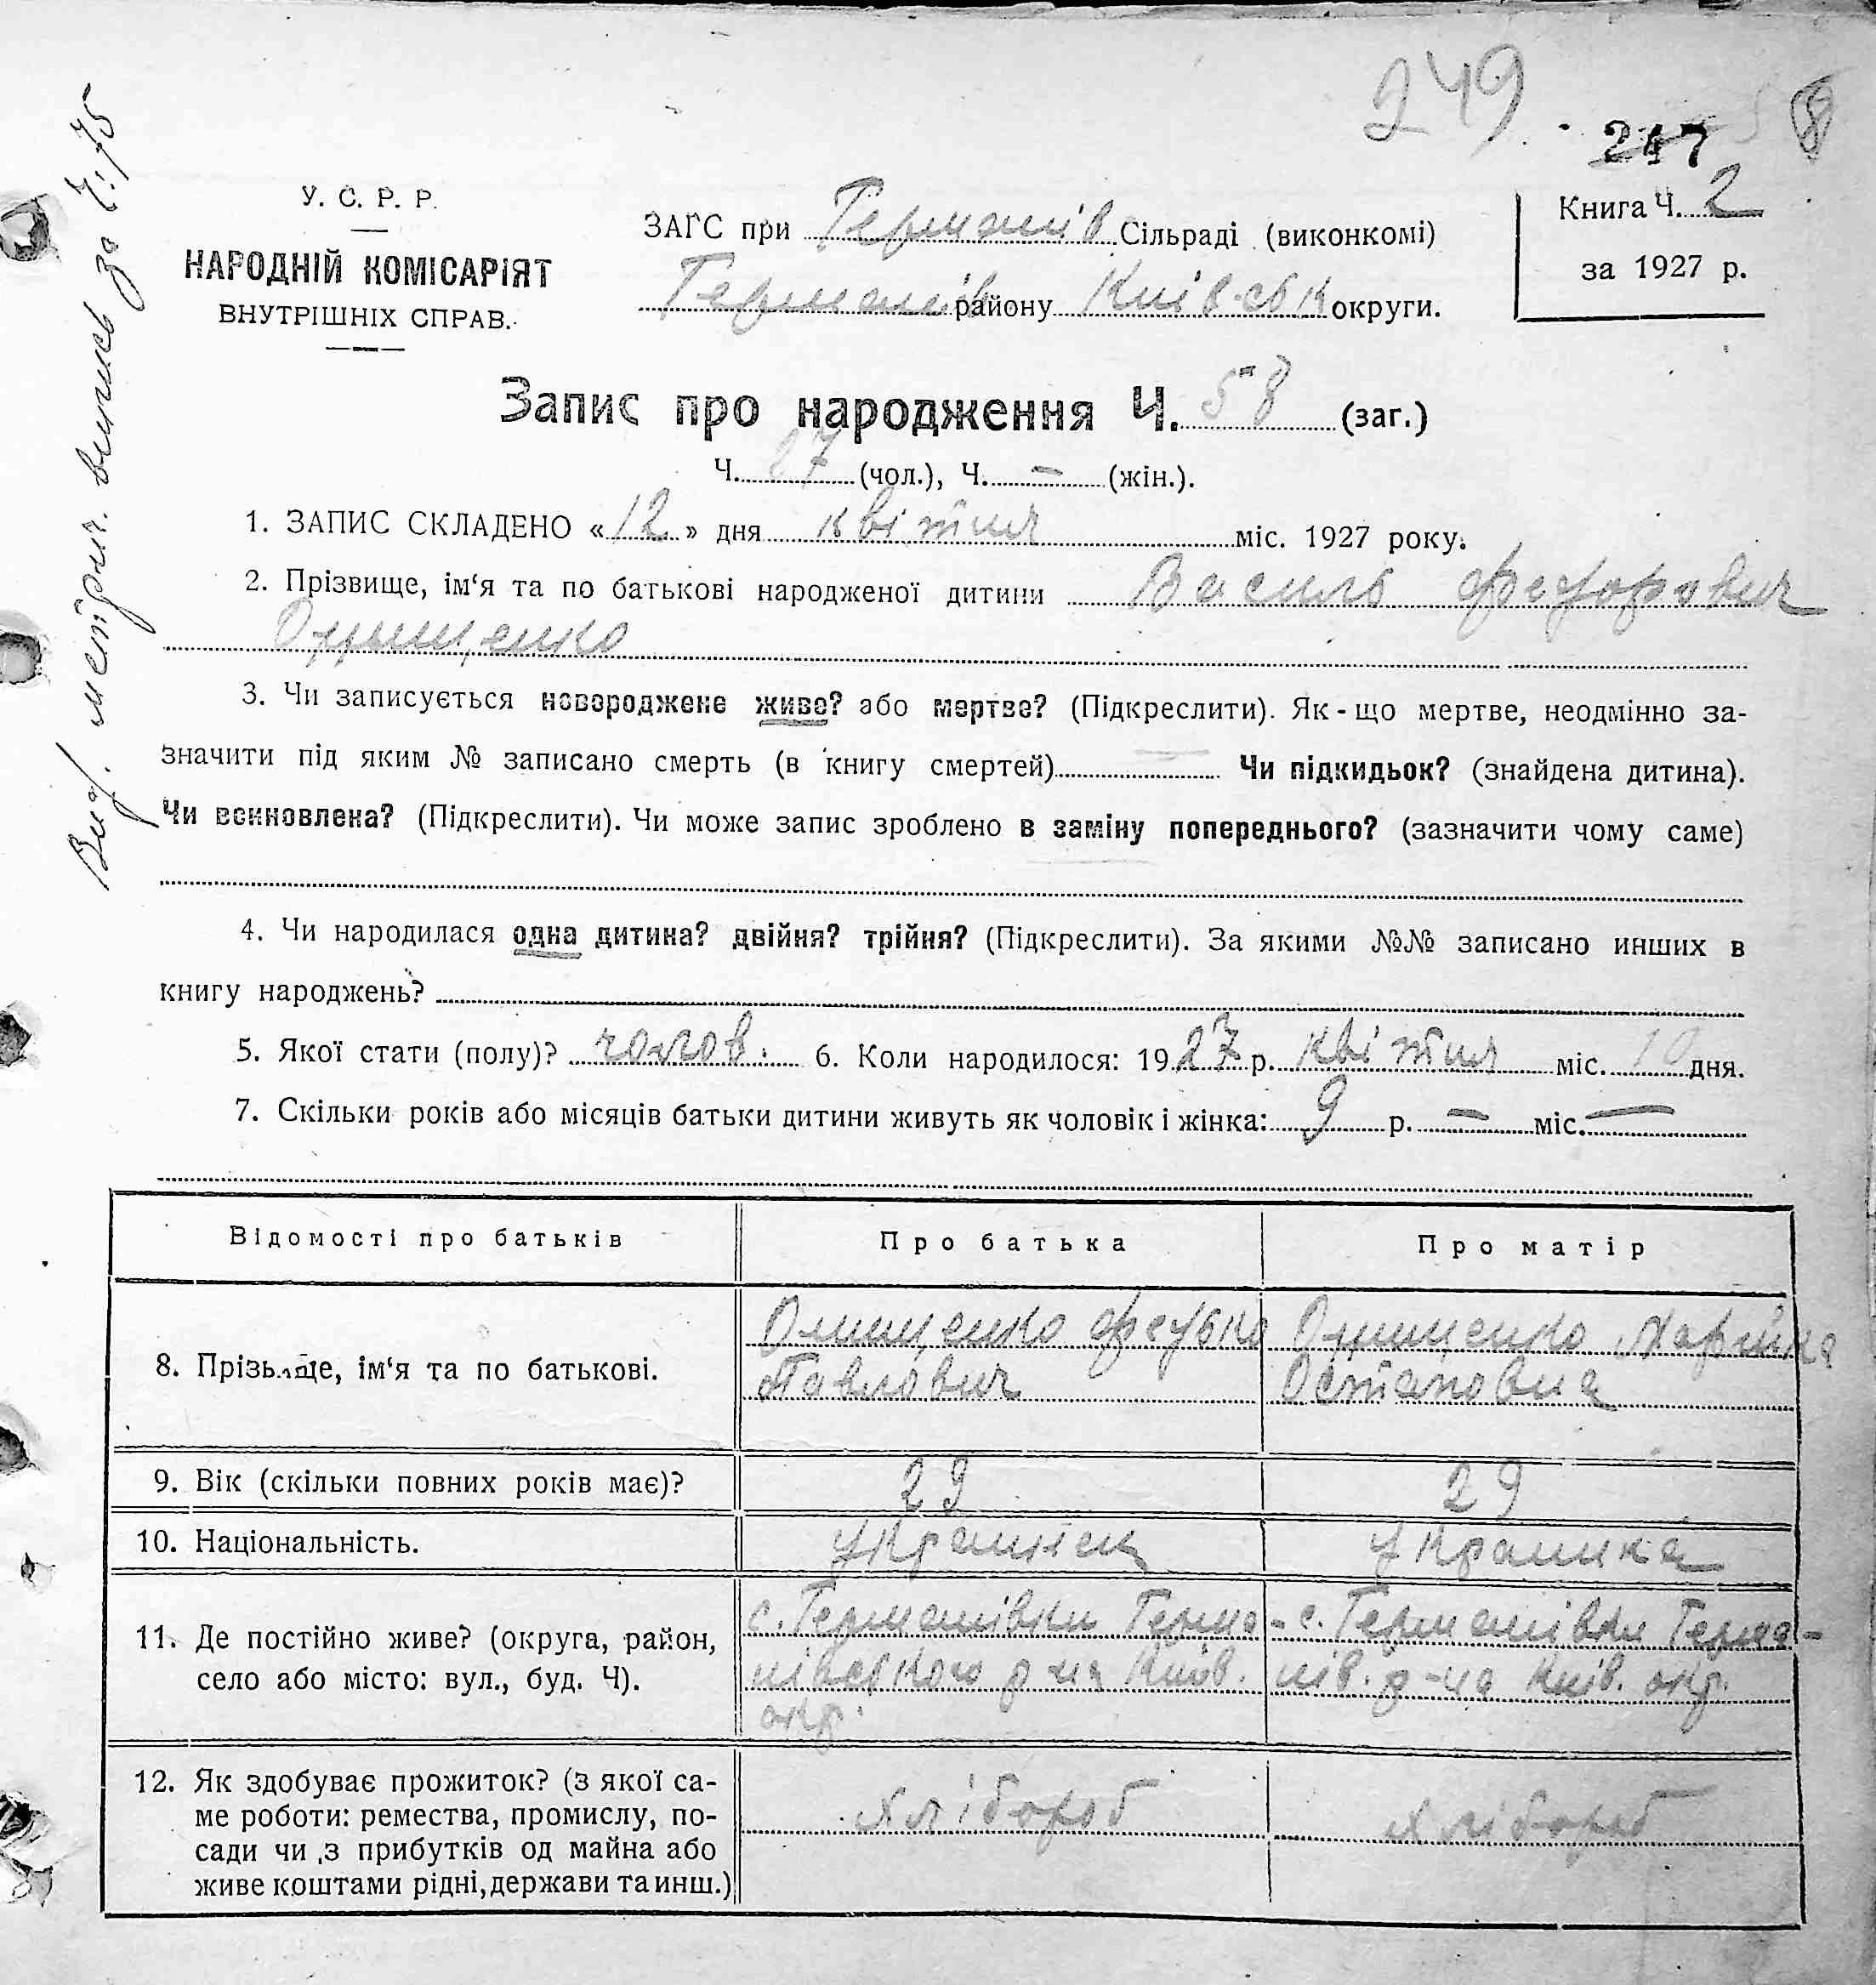 249
247
Вид. метрич. випись за Ч: 75
У. С. Р. Р.
НАРОДНІЙ КОМІСАРІЯТ
ВНУТРІШНІХ СПРАВ.
ЗАГС при Германів Сільраді (виконкомі)
Германів району Київськ округи.
Книга Ч. 2
за 1927 р.
Запис про народження Ч. 58 (заг.)
Ч. 27 (чол.), Ч. — (жін.).
1. ЗАПИС СКЛАДЕНО «12» дня квітня міс. 1927 року.
2. Прізвище, ім‘я та по батькові народженої дитини Василь Федорович
Онищенко
3. Чи записується новороджене живе? або мертве? (Підкреслити). Як-що мертве, неодмінно за-
значити під яким № записано смерть (в книгу смертей) — Чи підкидьок? (знайдена дитина).
Чи всиновлена? (Підкреслити). Чи може запис зроблено в заміну попереднього? (зазначити чому саме)
4. Чи народилася одна дитина? двійня? трійня? (Підкреслити). За якими №№ записано инших в
книгу народжень?
5. Якої стати (полу)? чолов. 6. Коли народилося: 1927 р. квітня міс. 10 дня.
7. Скільки років або місяців батьки дитини живуть як чоловік і жінка: 9 р. — міс. —
Відомості про батьків Про батька Про матір
8. Прізвище, ім‘я та по батькові.
Онищенко Федько
Павлович
Онищенко
Остаповна
9. Вік (скільки повних років має)? 29 29
10. Національність. українец українка
11. Де постійно живе? (округа, район,
село або місто: вул., буд. Ч).
с. Германівки Герма-
нівського р-на Київ.
окр.
с. Германівки Герма-
нів. р-на Київ. окр.
12. Як здобуває прожиток? (з якої са-
ме роботи: ремества, промислу, по-
сади чи з прибутків од майна або
живе коштами рідні, держави та инш.)
хлібороб
хлібороб